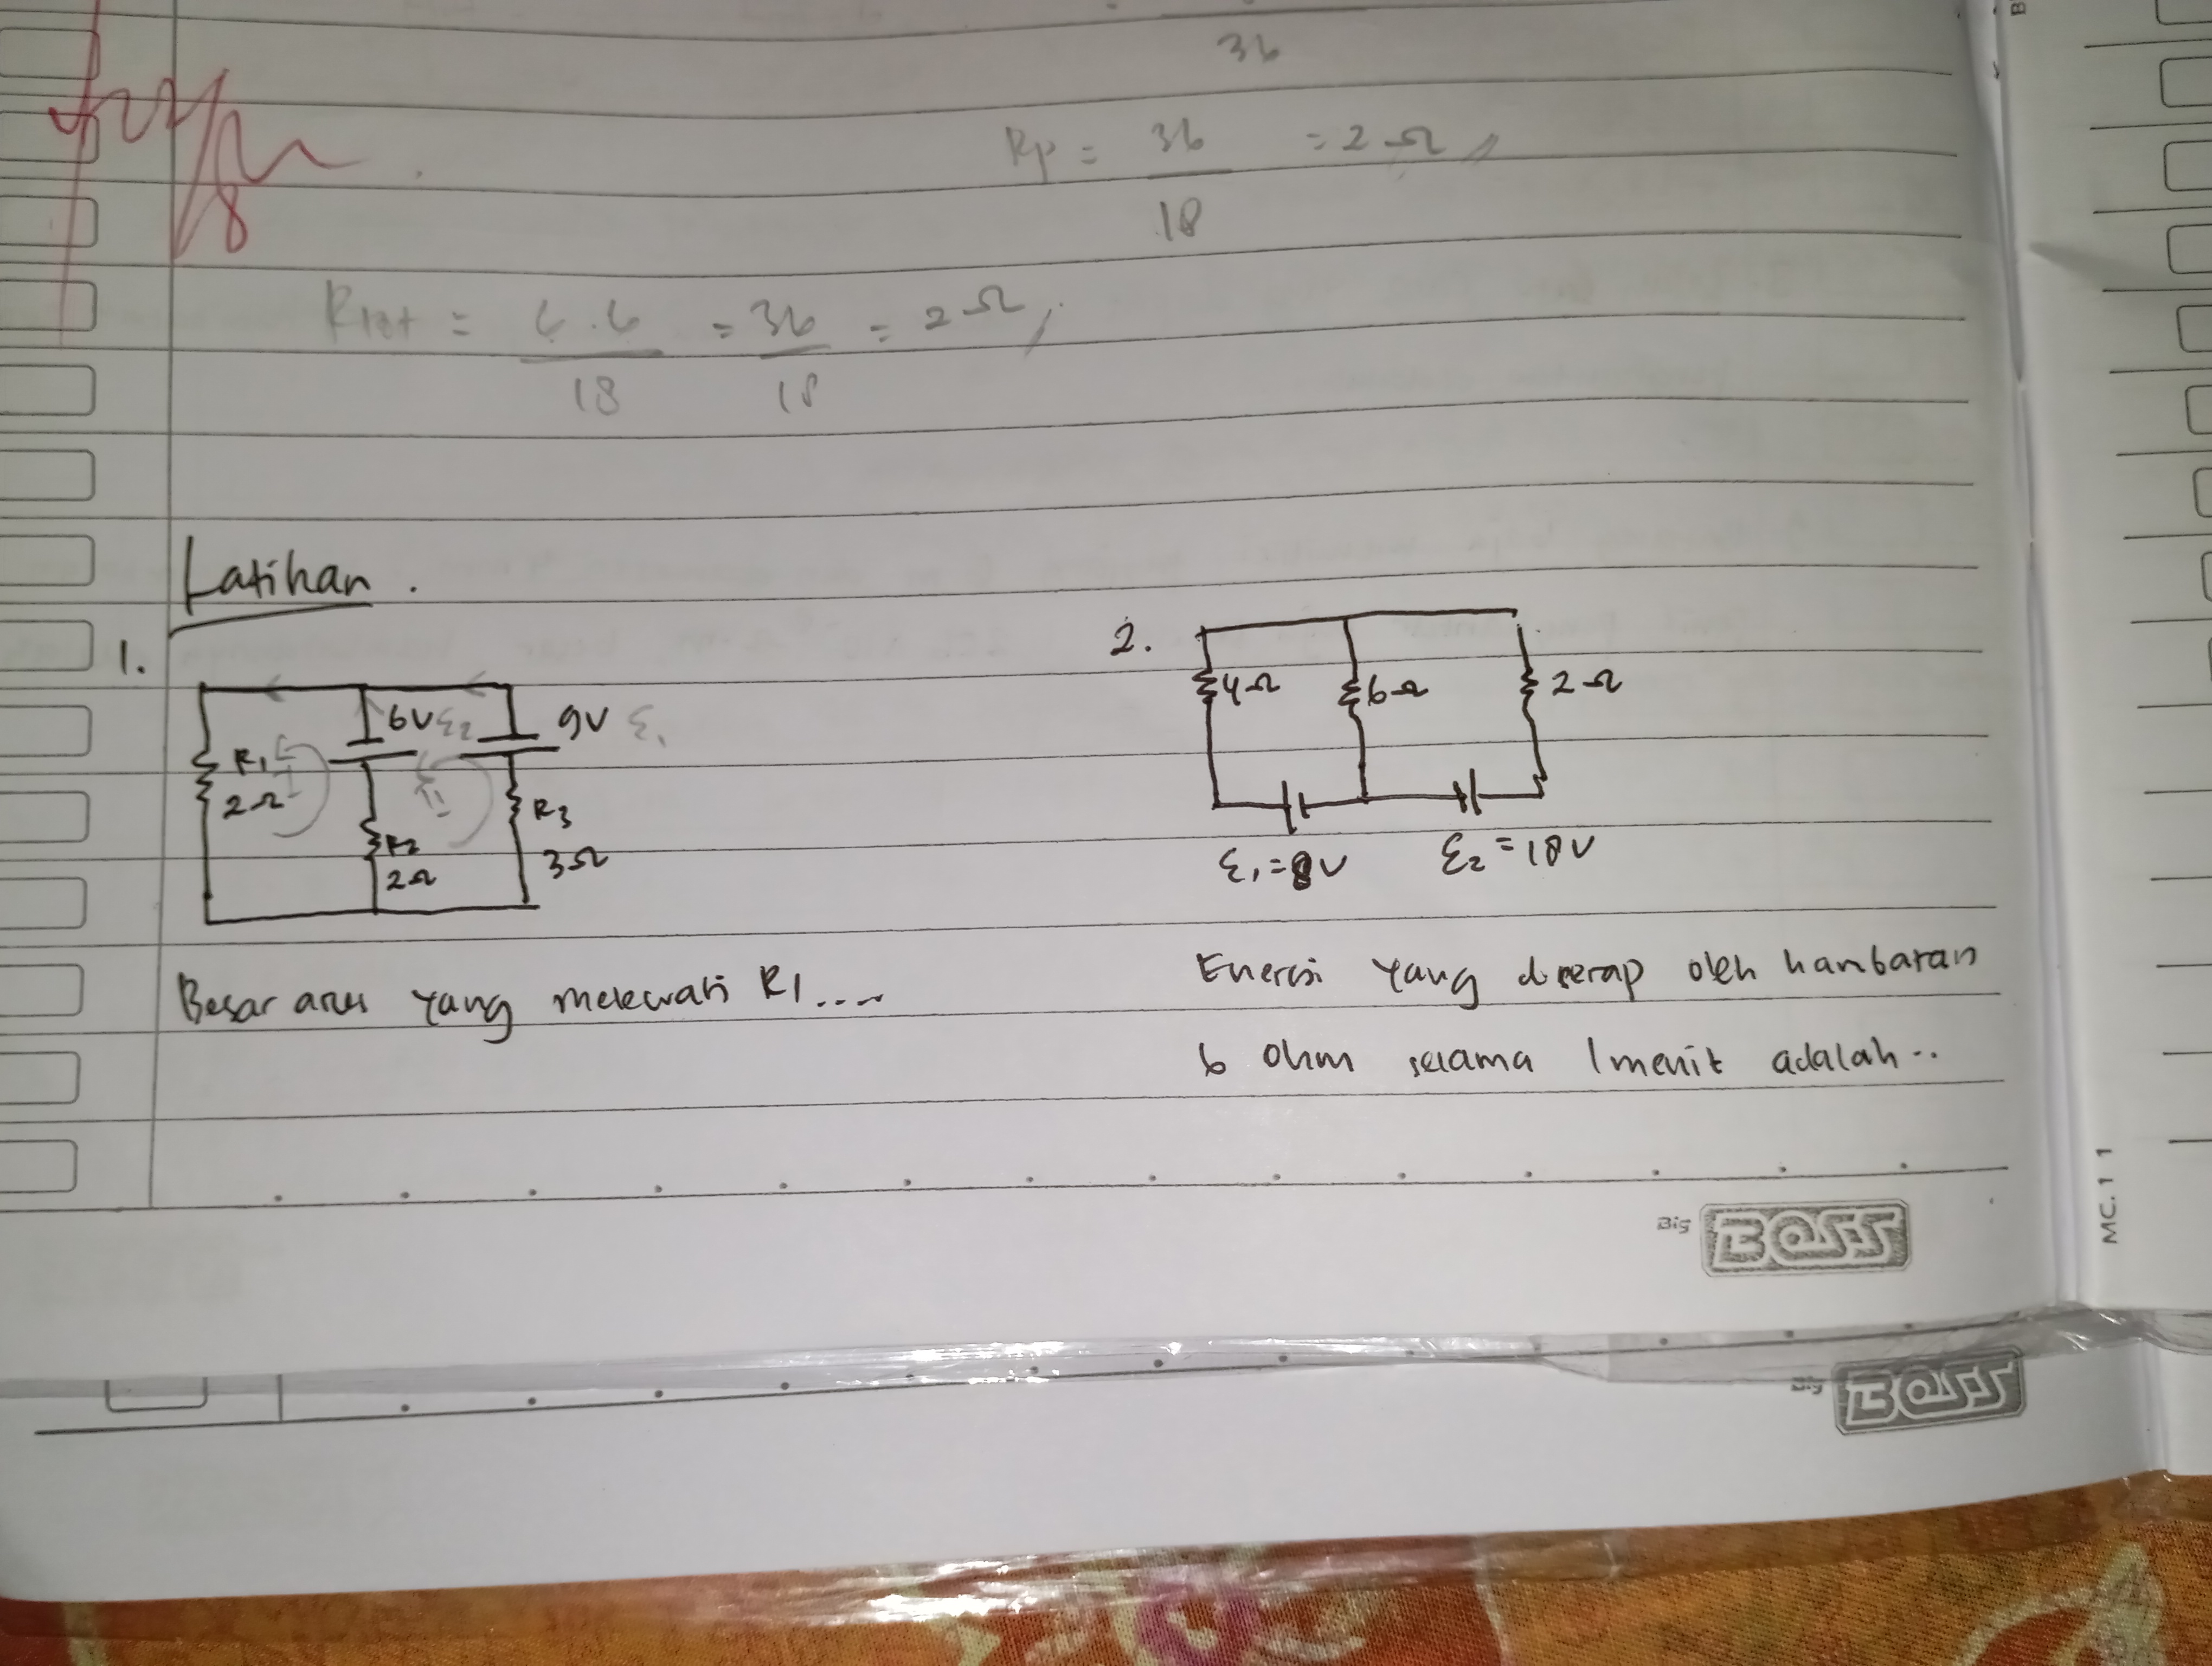 36
Rp = 36 = 2 Ω //
18
8
Rtot = 6.6 = 36 = 2 Ω //
18 18
Latihan.
1.
6V ε2 9V ε1
R1
2Ω
R2
2Ω
R3
3Ω
Besar arus yang melewati R1....
2.
4Ω 6Ω 2Ω
ε1 = 8V ε2 = 18V
Energi yang diserap oleh hambatan
6 Ohm selama 1 menit adalah..
Big BOSS
MC.11
Big BOSS